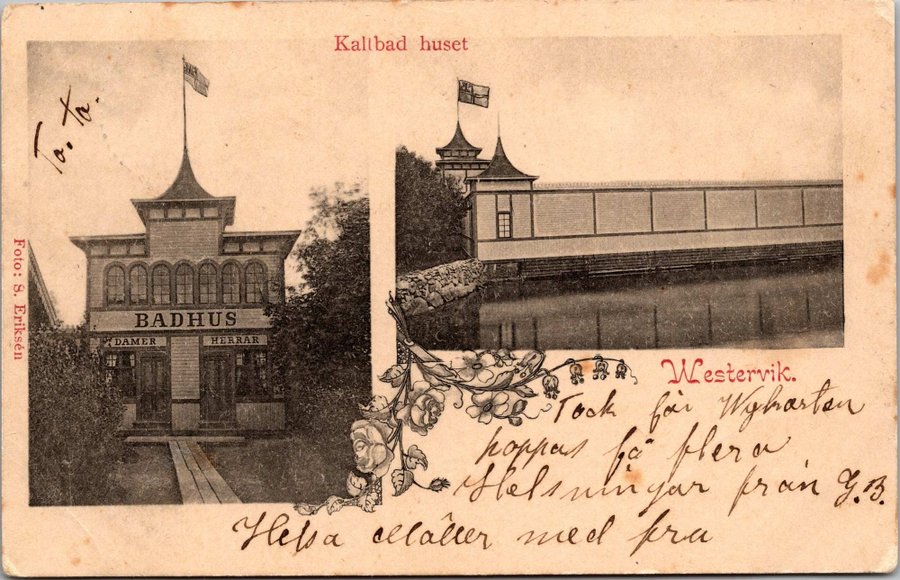 Kallbad huset
To. Ta.
BADHUS
DAMER
HERRAR
Foto: S. Eriksén
Westervik.
Tack för Wykorten
hoppas få flera
Helsningar från G.B.
Helsa Möller med fru